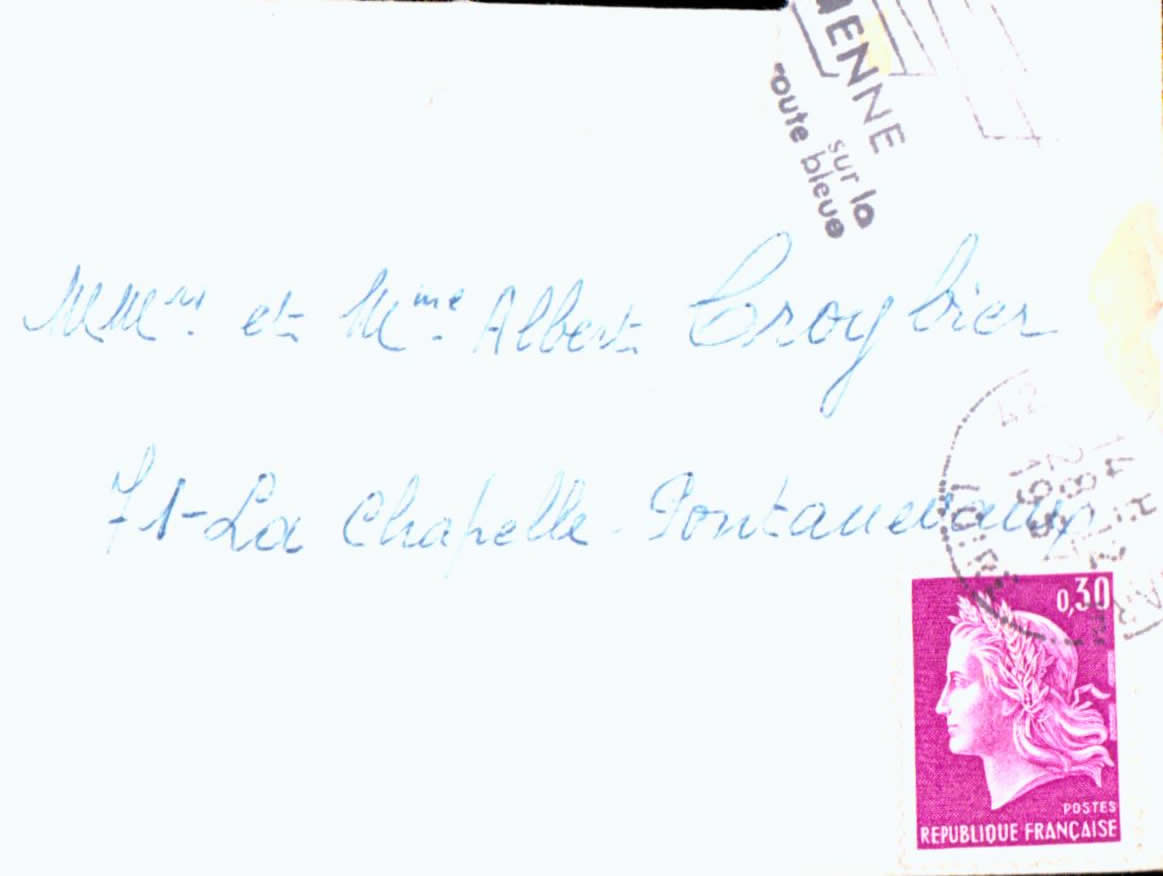 ENNE
sur la
route bleue
et Mme Albert Croybier
71-La Chapelle-Pontanevaux
0,30
POSTES
REPUBLIQUE FRANÇAISE